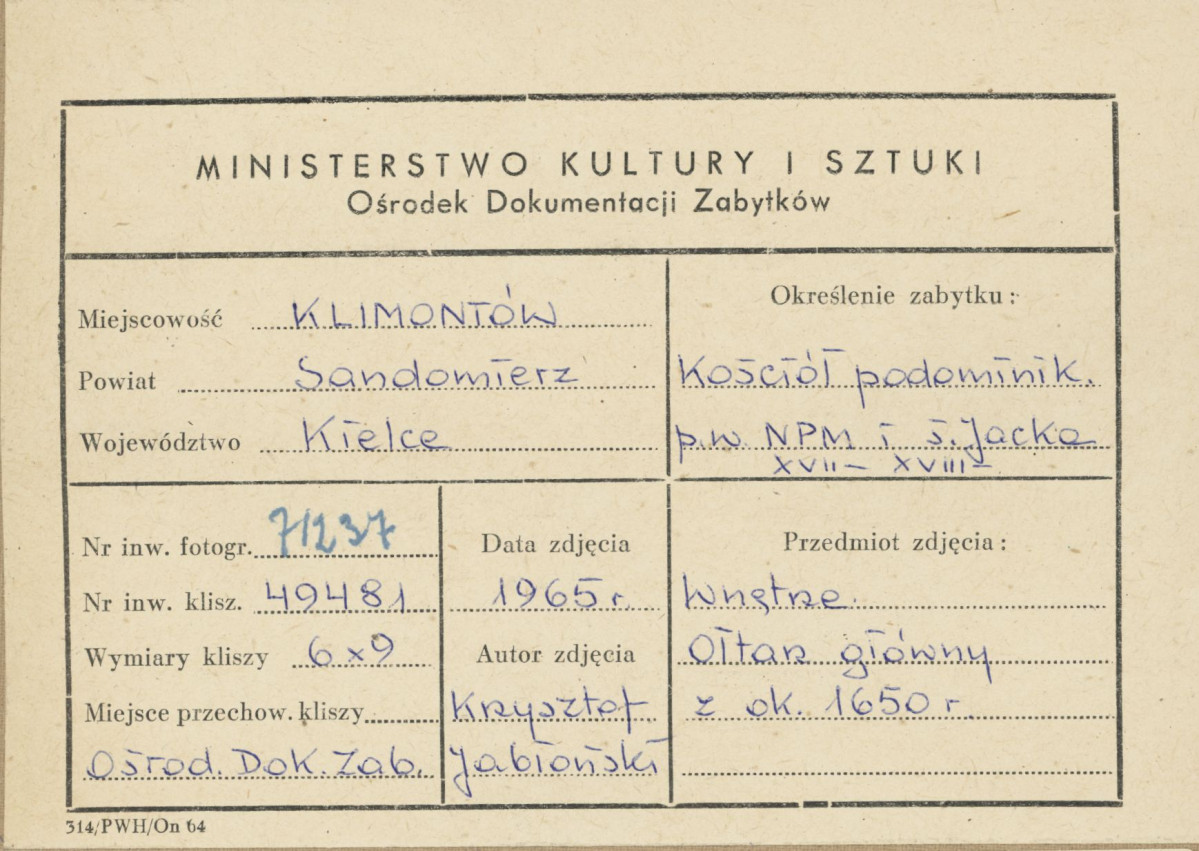 MINISTERSTWO KULTURY I SZTUKI
Ośrodek Dokumentacji Zabytków
Miejscowość KLIMONTÓW
Powiat Sandomierz
Województwo Kielce
Określenie zabytku:
Kościół podominik.
p.w. NPM i ś. Jacka
XVII – XVIII –
Nr inw. fotogr. 71237
Nr inw. klisz. 49481
Wymiary kliszy 6x9
Miejsce przechow. kliszy
Ośrod. Dok. Zab.
Data zdjęcia
1965 r.
Autor zdjęcia
Krzysztof
Jabłoński
Przedmiot zdjęcia:
Wnętrze.
Ołtarz główny
z ok. 1650 r.
314/PWH/On 64